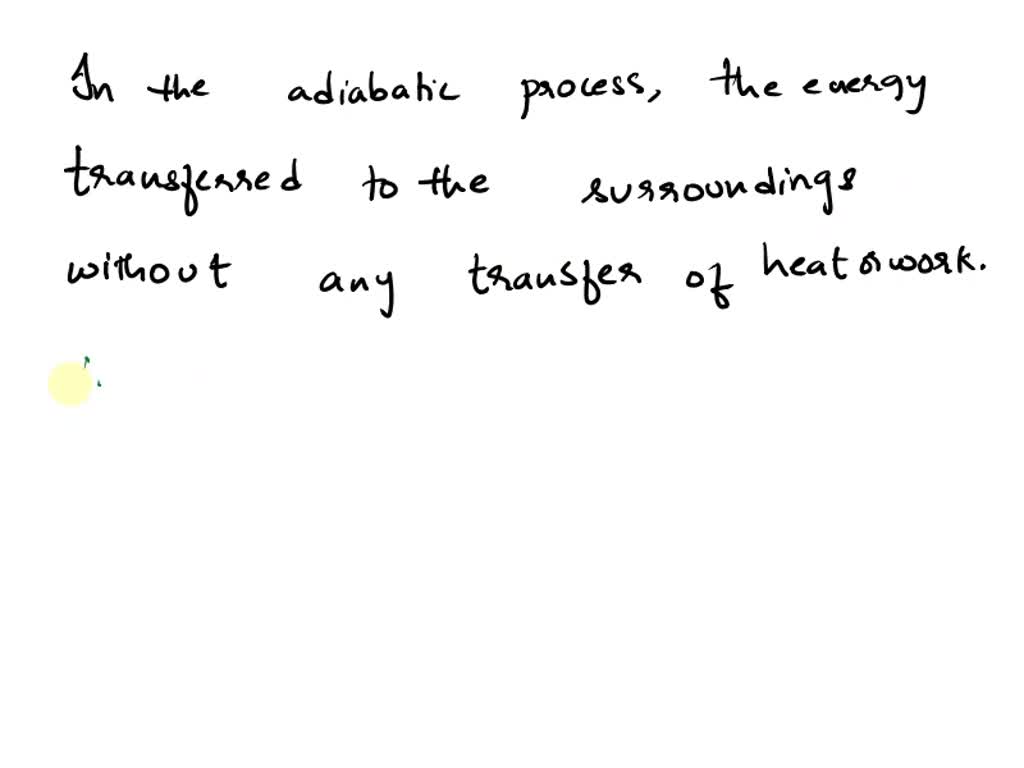 In the adiabatic process, the energy
transferred to the surroundings
without any transfer of heat or work.